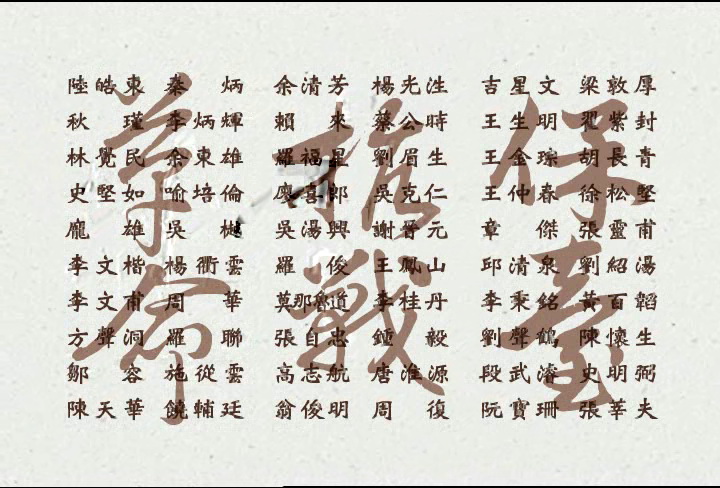 革命 抗戰 保臺
陸皓東 秦炳 余清芳 楊光泩 吉星文 梁敦厚
秋瑾 李炳輝 賴來 蔡公時 王生明 翟紫封
林覺民 余東雄 羅福星 劉眉生 王金琮 胡長青
史堅如 喻培倫 廖喜郎 吳克仁 王仲春 徐松堅
龐雄 吳樾 吳湯興 謝晉元 章傑 張靈甫
李文楷 楊衢雲 羅俊 王鳳山 邱清泉 劉紹湯
李文甫 周華 莫那魯道 李桂丹 李秉銘 黃百韜
方聲洞 羅聯 張自忠 鍾毅 劉聲鶴 陳懷生
鄒容 施從雲 高志航 唐淮源 段武濬 史明弼
陳天華 饒輔廷 翁俊明 周復 阮寶珊 張莘夫